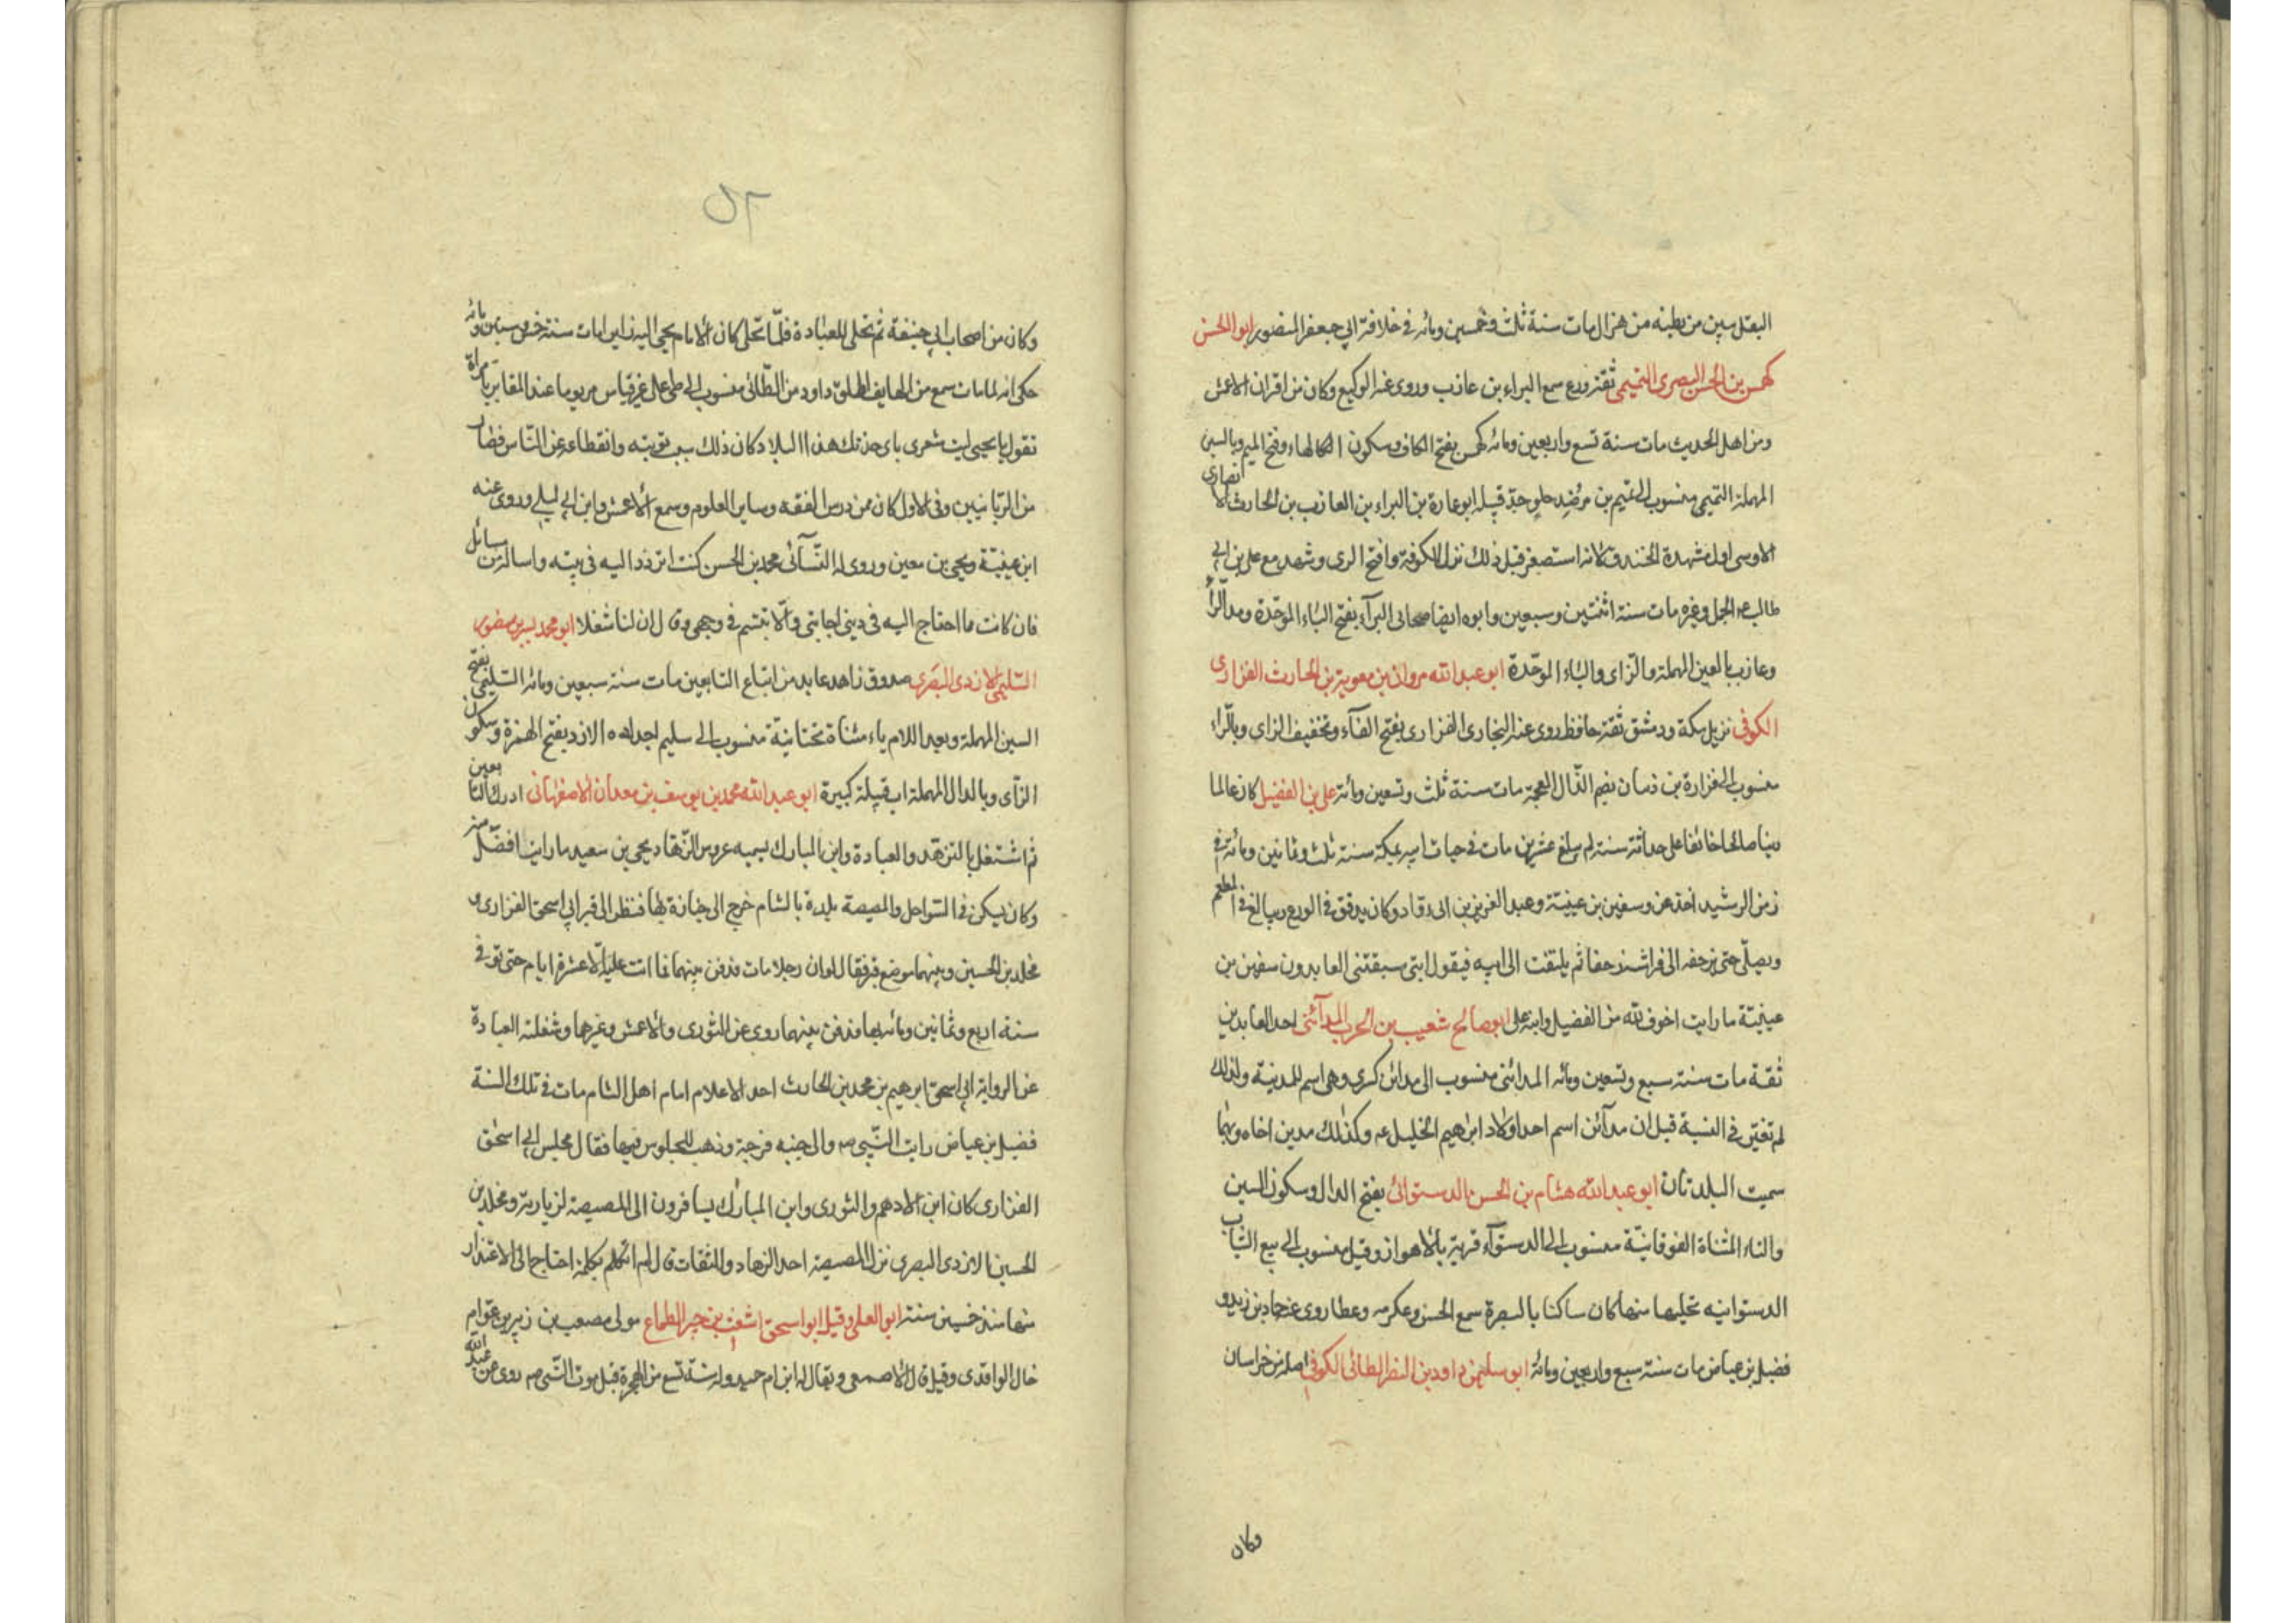 البقل يبين من بطنه من هزال مات سنة ثلث وخمسين ومائه في خلافة ابي جعفر المنصور ابو الحسن
كهمس بن الحسن البصرى التميمى ثقة ورع سمع البراء بن عازب وروى عنه الوكيع وكان من اقران الاعمش
ومن اهل الحديث مات سنة تسع واربعين ومائه كهمس بفتح الكاف وسكون الهاء وفتح الميم وبالسين
المهملة التميمى منسوب الى تميم بن مر جد قبيله ابو عمارة بن البراء بن العازب بن الحارث الانصارى
الاوسى اول مشهدة الخندق لانه استصغر قبل ذلك نزل الكوفة وافتح الرى وشهد مع على بن ابى
طالب الجمل وغيره مات سنة اثنتين وسبعين وابوه ايضا صحابى البرآء بفتح الباء الموحّدة ومد الرآء
وعازب بالعين المهملة والزاى والباء الموحّدة ابو عبد الله مروان بن معوية بن الحارث الفزارى
الكوفى نزيل مكة ودمشق ثقة حافظ روى عنه البخارى الفزارى بفتح الفآء وتخفيف الزاى وبالرّاء
منسوب الى فزارة بن ذبيان بضم الذّال المعجمة مات سنة ثلث وتسعين ومائة على بن الفضيل كان عالما
صالحا خائفا على حداثة سنه لم يبلغ عشرين مات في حيات ابيه بمكة سنة ثلث وثمانين ومائة في
زمن الرشيد اخذ عن وسفين بن عيينة وعبد العزيز بن ابى وكان يدقق في الورع ويبالغ في المطعم
ويصلّى حتى يزحف الى فراشه زحفا ثم يلتفت الى ابيه فيقول ابتى سبقتنى العابدون سفين بن
عيينة ما رايت اخوف لله من الفضيل وابنه على ابو صالح شعيب بن الحرب المدآئنى احد العابدين
ثقة مات سنة سبع وتسعين ومائه المدائنى منسوب الى مدائن كسرى وهى اسم للمدينة ولذلك
لم تغير في النسبة قيل ان مدآئن اسم احد اولاد ابرهيم الخليل عم وكذلك مدين اخاه وبهما
سميت البلدتان ابو عبد الله هشام بن الحسن الدستوائى بفتح الدال وسكون السين
والتاء المثناة الفوقانيّة منسوب الى الدستوآء قرية بالاهواز وقيل منسوب الى بيع الثياب
الدستوانيه تجلبها منها كان ساكنا بالبصرة سمع الحسن وعكرمه وعطا روى عنه حماد بن زيد و
فضيل بن عياض مات سنة سبع واربعين ومائة ابو سليمن داود بن النضر الطائى الكوفى اصله من خراسان
وكان
٥٢
وكان من اصحاب ابى حنيفة ثم تخلى للعبادة فلمّا تخلى كان الامام يجى اليه زايرا مات سنة خمس وستين ومائه
حكى انه لما مات سمع من الهايف اطلق داود من الطّائى منسوب الى طى على غير قياس مر يوما عند المقابر بامراة
تقول يا يحيى ليت شعرى باى خدتك هذا البلا وكان ذلك سبب توبته وانقطاعه عن النّاس فصار
من الربّانيين وفى الاول كان ممن درس الفقه وساير العلوم وسمع الاعمش وابن ابى ليلى وروى عنه
ابن عيينة ويحيى بن معين وروى له النّسآئى محمد بن الحسن كنت اتردد اليه في بيته واساله من مسائل
فان كانت مما احتاج اليه في دينى اجابنى والّا تبسّم في وجهى وقال ان لنا شغلا ابو محمد بشر بن منصور
السّليمى الازدى البصرى صدوق زاهد عابد من اتباع التابعين مات سنة سبعين ومائه السّليمى بفتح
السين المهملة وبعد اللام ياء مثناة تحتانية منسوب الى سليم اجداده الازد بفتح الهمزة وسكون
الزآى وبالدال المهملة اب قبيلة كبيرة ابو عبد الله محمد بن يوسف بن معدان الاصفهانى ادرك التابعين
ثم اشتغل بالتزهّد والعبادة وابن المبارك يسميه عروس الزّهاد يحيى بن سعيد ما رايت افضل منه
وكان يسكن في السّواحل والمصيصة بلدة بالشام خرج الى جنازة بها فنظر الى قبر ابى اسحق الفزارى و
مخلد بن الحسين وبينهما موضع قبر فقال لو ان رجلا مات فدفن بينهما فما اتت عليه الّا عشرة ايام حتى توفى
سنة اربع وثمانين ومائه بها فدفن بينهما روى عن الثورى والاعمش وغيرهما وشغلته العبادة
عن الرواية ابى اسحق ابرهيم بن محمد بن الحارث احد الاعلام امام اهل الشام مات في تلك السنة
فضيل بن عياض رايت النّبى صم والى جنبه فرجة وذهبت للجلوس فيها فقال مجلس ابى اسحق
الفزارى كان ابن الادهم والثورى وابن المبارك يسافرون الى المصيصة لزيارته ومخلد بن
الحسين الازدى البصرى نزل المصيصة احد الزهاد والثقات قال لم اتكلم بكلمة احتاج الى الاعتذار
منها منذ خمسين سنة ابو العلى وقيل ابو اسحق اشعب بن جبر الطماع مولى مصعب بن زبير بن عوام
خال الواقدى وقيل قال الاصمعى ويقال له ابن ام حميد ولد سنة تسع من الهجرة قبل موت النّبى صم روى عن عبد الله